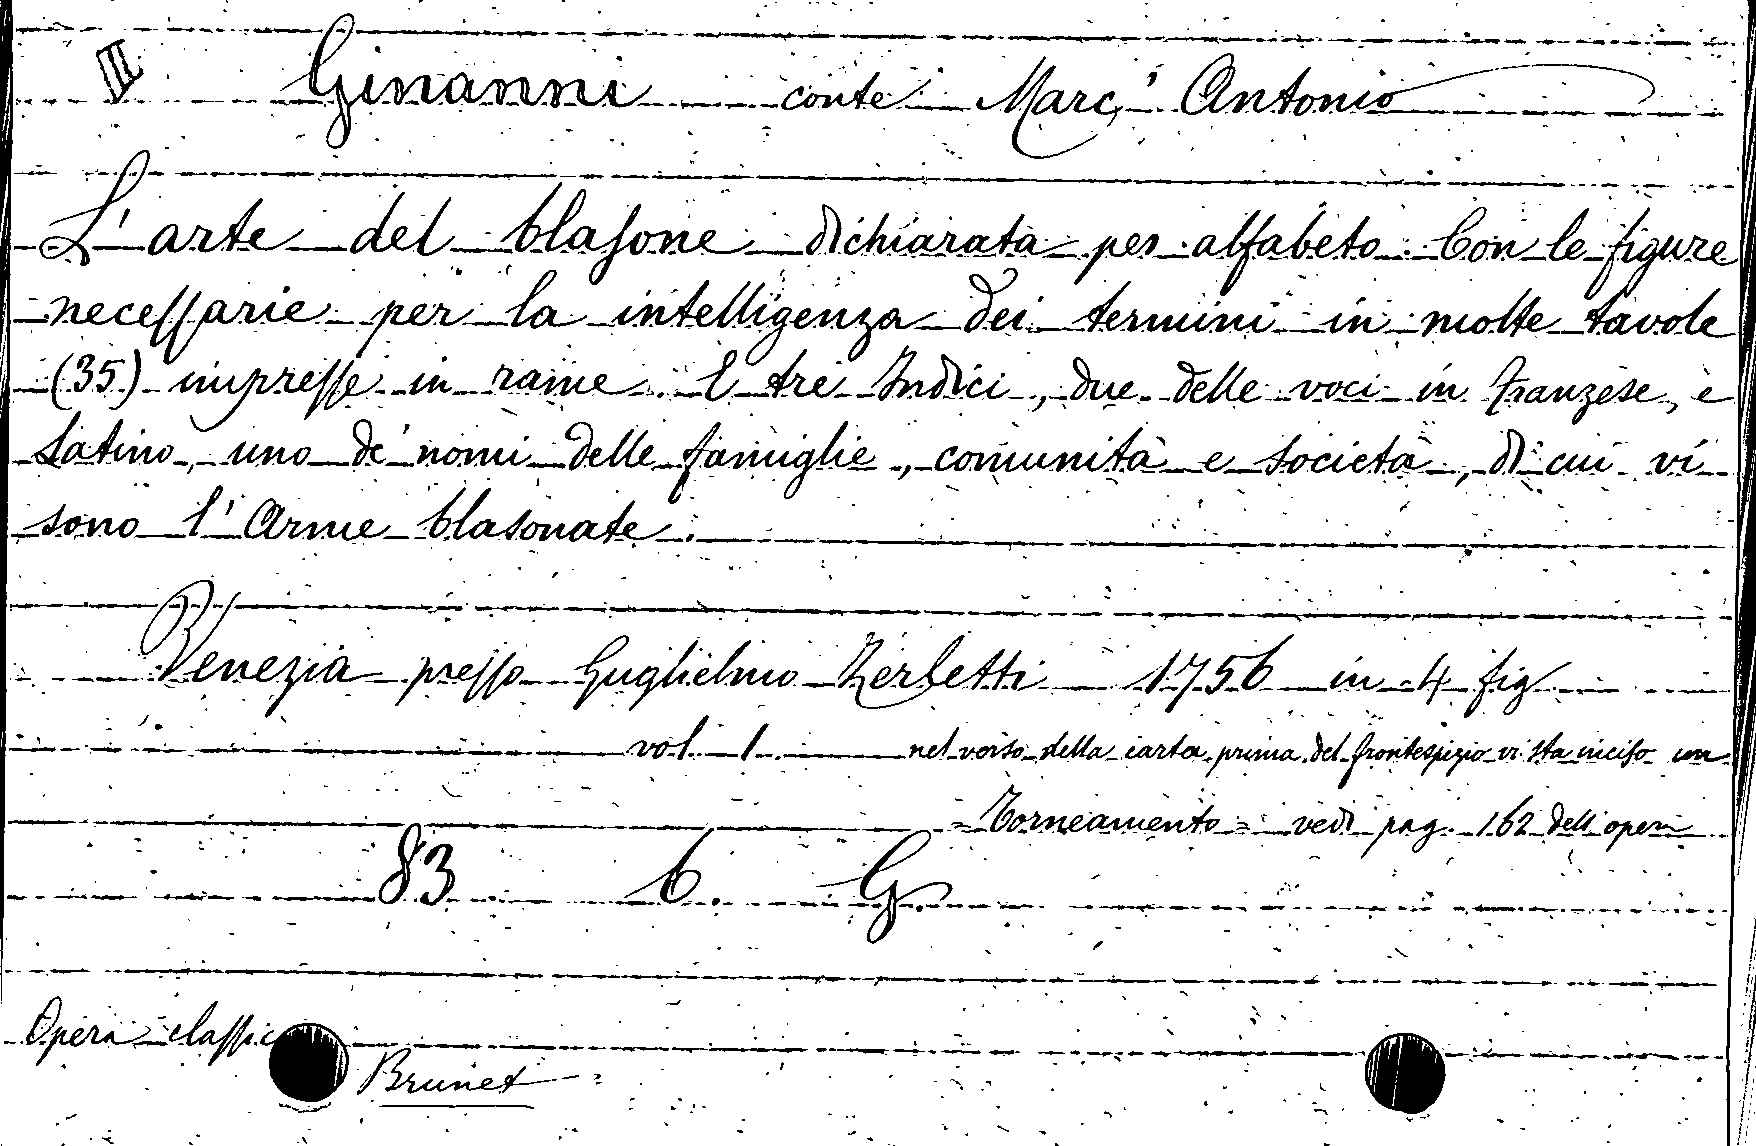 III Ginanni conte Marc' Antonio
L'arte del blasone dichiarata per alfabeto. Con le figure
necessarie per la intelligenza dei termini in molte tavole
(35) impresse in rame. E tre Indici, due delle voci in franzese, e
latino, uno de' nomi delle famiglie, comunità e società, di cui vi
sono l'Arme blasonate.
Venezia presso Guglielmo Zerletti 1756 in 4 fig
vol. 1. nel verso della carta prima del frontespizio vi sta inciso un
= Torneamento = vedi pag. 162 dell'opera
83 6. G.
Opera
Brunet